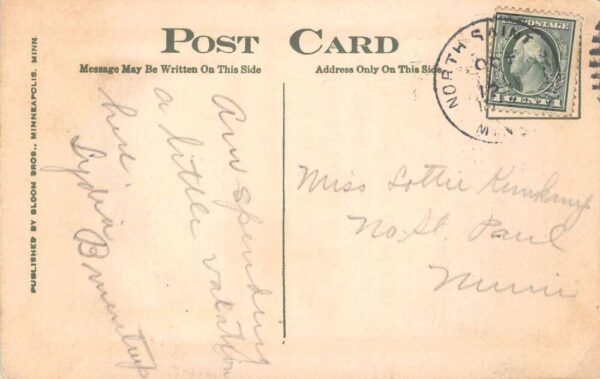 POST CARD
Message May Be Written On This Side
Address Only On This Side
PUBLISHED BY BLOOM BROS., MINNEAPOLIS, MINN.
NORTH SAINT
OCT
12
MINN
POSTAGE
1 CENT 1
Am spending
a little vacation
here.
Lydia
Miss Lottie
No. St. Paul
Minn